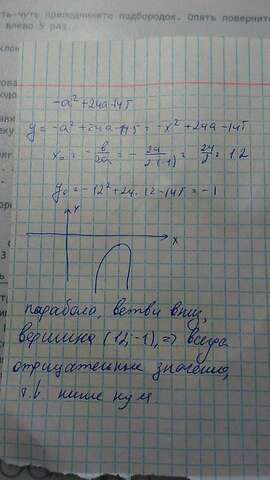 ть-чуть приподнимите подбородок. Опять поверните
влево 5 раз.
-a² + 24a - 145
y = -a² + 24a - 145 = -x² + 24a - 145
x₀ = -в/2a = -24/2·(-1) = 24/2 = 12
y₀ = -12² + 24·12 - 145 = -1
Y
X
парабола, ветви вниз,
вершина (12; -1), => всегда
отрицательные значения,
т.к ниже нуля.